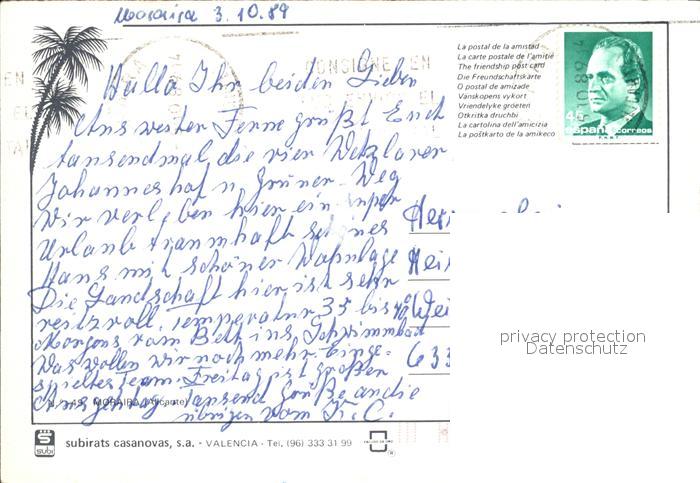 Moraira 3.10.89
La postal de la amistad
La carte postale de l'amitié
The friendship post card
Die Freundschaftskarte
O postal de amizade
Vänskapens vykort
Vriendelyke groeten
Otkritka druchbi
La cartolina dell'amicizia
La poŝtkarto de la amikeco
45
españa correos
F.N.M.T.
CONSIGNE EN
10.89-14
Hallo Ihr beiden Lieben
Aus weiter Ferne grüßt Euch
tausendmal die vier Wetzlarer
Johanneshof n Grüner Weg
Wir verleben hier ein super
Urlaub traumhaft schönes
Haus mit schöner Wohnlage
Die Landschaft hier ist sehr
reitzvoll. Temperatur 35 bis 40°
Morgens vom Bett ins Schwimmbad
Was wollen wir noch mehr. Einge-
spieltes Team. Freitag ist großer
Ausgehtag. Tausend Grüße an die
übrigen vom K. C.
MORAIRA (Alicante)
Herr
Hei
Wei
633
privacy protection
Datenschutz
subi
subirats casanovas, s.a. - VALENCIA - Tel. (96) 333 31 99